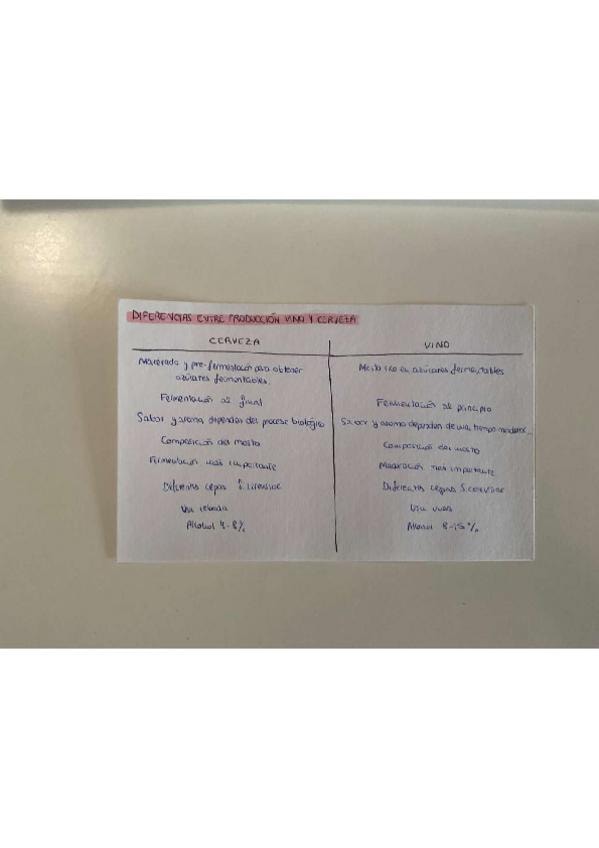 DIFERENCIAS ENTRE PRODUCCIÓN VINO Y CERVEZA
CERVEZA
Macerado y pre-fermentación para obtener
azúcares fermentables.
Fermentación al final
Sabor y aroma dependen del proceso biológico
Composición del mosto
Fermentación más importante
Diferentes cepas S. cerevisiae
Usa cebada
Alcohol 4-8%
VINO
Mosto rico en azúcares fermentables
Fermentación al principio
Sabor y aroma dependen de uva, tiempo madurac...
Composición del mosto
Maduración más importante
Diferentes cepas S. cerevisiae
Usa uvas
Alcohol 8-15%